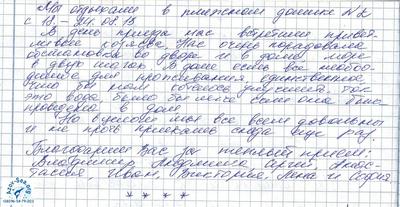 Мы отдыхали в пляжном домике №2
с 18 – 24.08.18
В день приезда нас встретили привет-
ливые хозяева. Нас очень порадовала
обстановка во дворе и в доме, море
в двух шагах. В доме есть все необхо-
димое для проживания, единственное,
что бы нам хотелось улучшить, так
это вода, было бы лучше если она была
проведена в дом.
Но в целом мы все всем довольны
и не прочь приехать сюда еще раз
Благодарим Вас за теплый прием:
Владимир, Людмила, Сергей, Анас-
тасия, Иван, Виктория, Лена и София.
* * * *